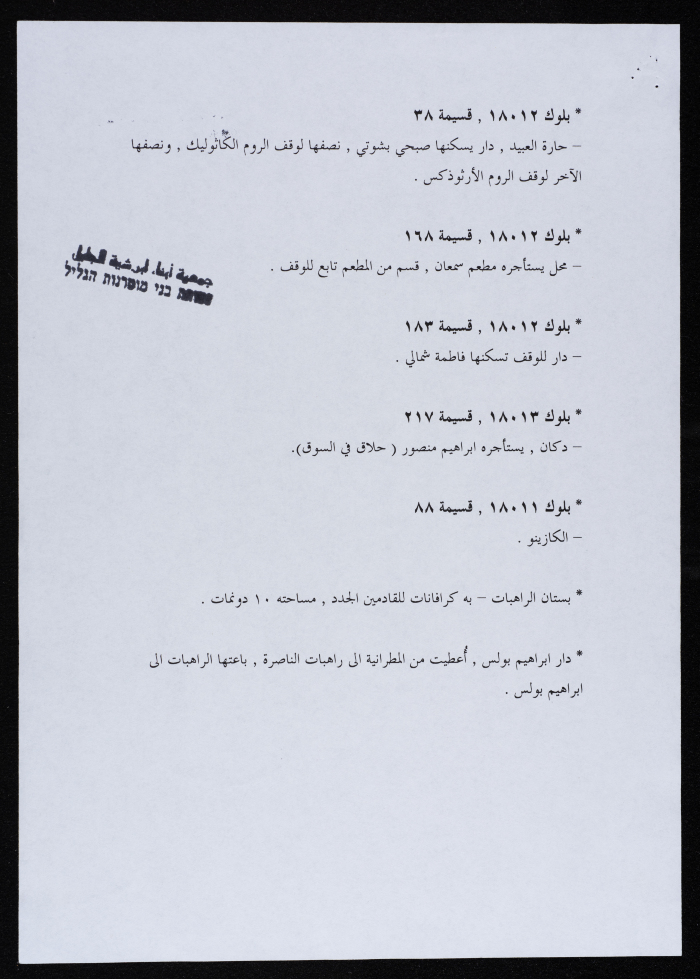 * بلوك ١٨٠١٢ , قسيمة ٣٨
– حارة العبيد , دار يسكنها صبحي بشوتي , نصفها لوقف الروم الكاثوليك , ونصفها
الآخر لوقف الروم الأرثوذكس .
* بلوك ١٨٠١٢ , قسيمة ١٦٨
– محل يستأجره مطعم سمعان , قسم من المطعم تابع للوقف .
جمعية أبناء أبرشية الجليل
בני מוסרנות הגליל
* بلوك ١٨٠١٢ , قسيمة ١٨٣
– دار للوقف تسكنها فاطمة شمالي .
* بلوك ١٨٠١٣ , قسيمة ٢١٧
– دكان , يستأجره ابراهيم منصور ( حلاق في السوق).
* بلوك ١٨٠١١ , قسيمة ٨٨
– الكازينو .
* بستان الراهبات – به كرافانات للقادمين الجدد , مساحته ١٠ دونمات .
* دار ابراهيم بولس , أُعطيت من المطرانية الى راهبات الناصرة , باعتها الراهبات الى
ابراهيم بولس .